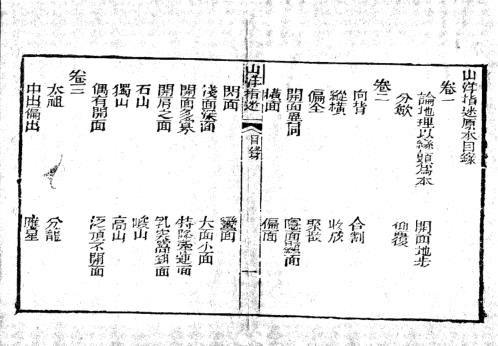 山洋指迷原本目錄
卷一
論地理以巒頭為本 開面地步
分斂 仰覆
卷二
向背 合割
縱橫 收放
偏全 聚散
開面異同 隱面顯面
橫面 偏面
山洋指迷 目錄 一
閃面 蠻面
淺面深面 大面小面
開面多寡 特降牽連面
開肩之面 乳突窩鉗面
石山 峻山
獨山 高山
偶有開面 泛頂不開面
卷三
太祖 分龍
中出偏出 應星